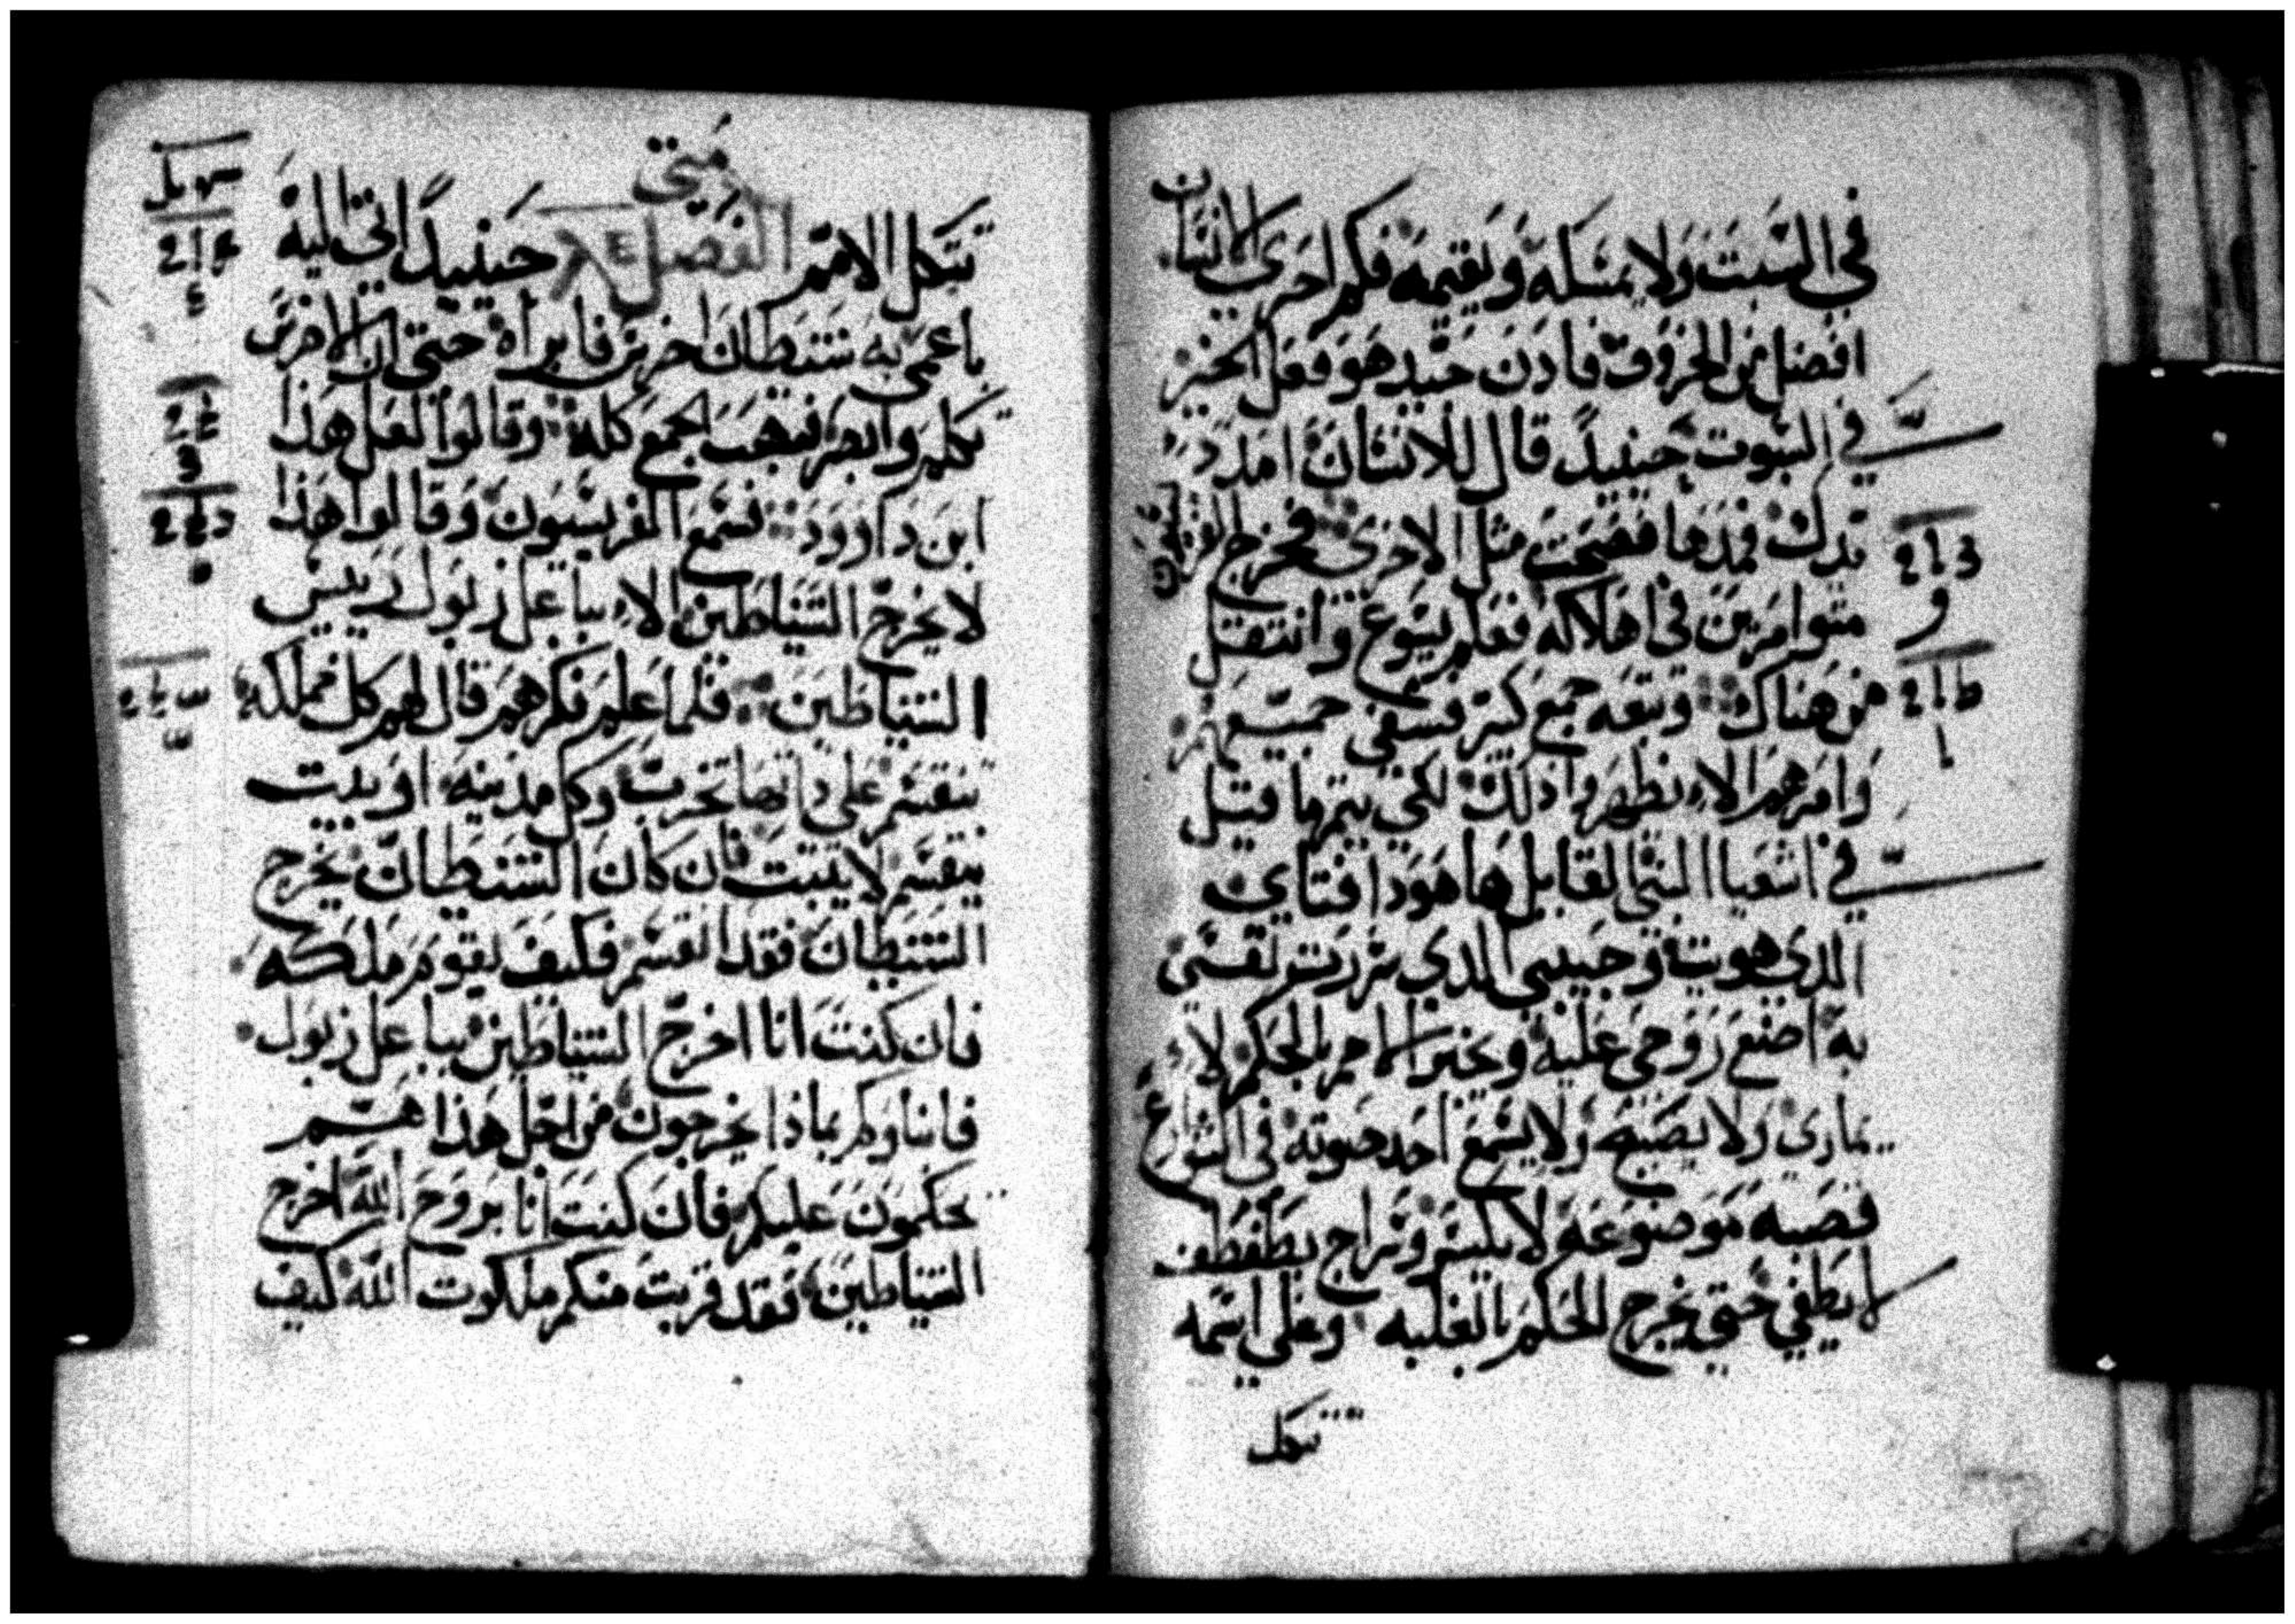 في السبت ولا يمسله ويقيمه فكم احرى الانسان
افضل من الخروف فادن جيد هو فعل الخير
في السبوت حينيدً قال للانسان امدد
يدك فمدها فصحت مثل الاخرى فخرج الفريسيون
متوامرين في اهلاكه فعلم يسوع وانتقل
من هناك وتبعه جمع كثير فشفى جميعهم
وامرهم الا يظهروا ذلك لكي يتم ما قيل
في اشعيا النبي القايل ها هودا فتاي
الدي هويت وحبيبي الدي سررت نفسي
به اضع روحي عليه ويخبر الامم بالحكم لا
يماري ولا يصيح ولا يسمع احد صوته في الشوارع
قصبه موضوعه لا يكسر وسراج يطفطف
لا يطفي حتى يخرج الحكم بالغلبه وعلى اسمه
تتكل
متى
تتكل الامم الفصل حينيدً اتي اليه
باعمى به شيطان اخرس فابراه حتى ان الاخرس
تكلم وابصر فتعجب الجمع كله وقالوا لعل هذا
ابن داوود فسمع الفريسيون وقالوا هذا
لا يخرج الشياطين الا بباعل زبول رييس
الشياطين فلما علم فكرهم قال لهم كل مملكه
تنقسم على داتها تخرب وكل مدينه او بيت
ينقسم لا يثبت فان كان الشيطان يخرج
الشيطان فقد انقسم فكيف تقوم مملكته
فان كنت انا اخرج الشياطين بباعل زبول
فابناوكم بماذا يخرجون من اجل هذا هم
يحكمون عليكم فان كنت انا بروح الله اخرج
الشياطين فقد قربت منكم ملكوت الله كيف